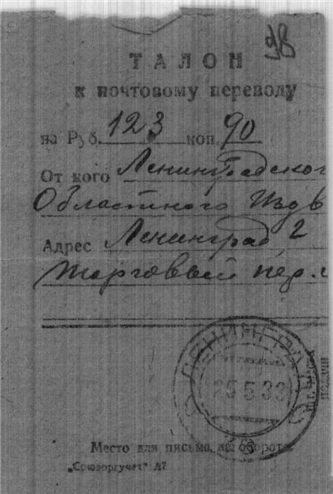 98
ТАЛОН
к почтовому переводу
на Руб. 123 коп. 90
От кого Ленинградског
Областного Изд
Адрес Ленинград 2
Торговый пер.
ЛЕНИНГРАД
25 5 33
Место для письма на обороте
„Союзоргучет“